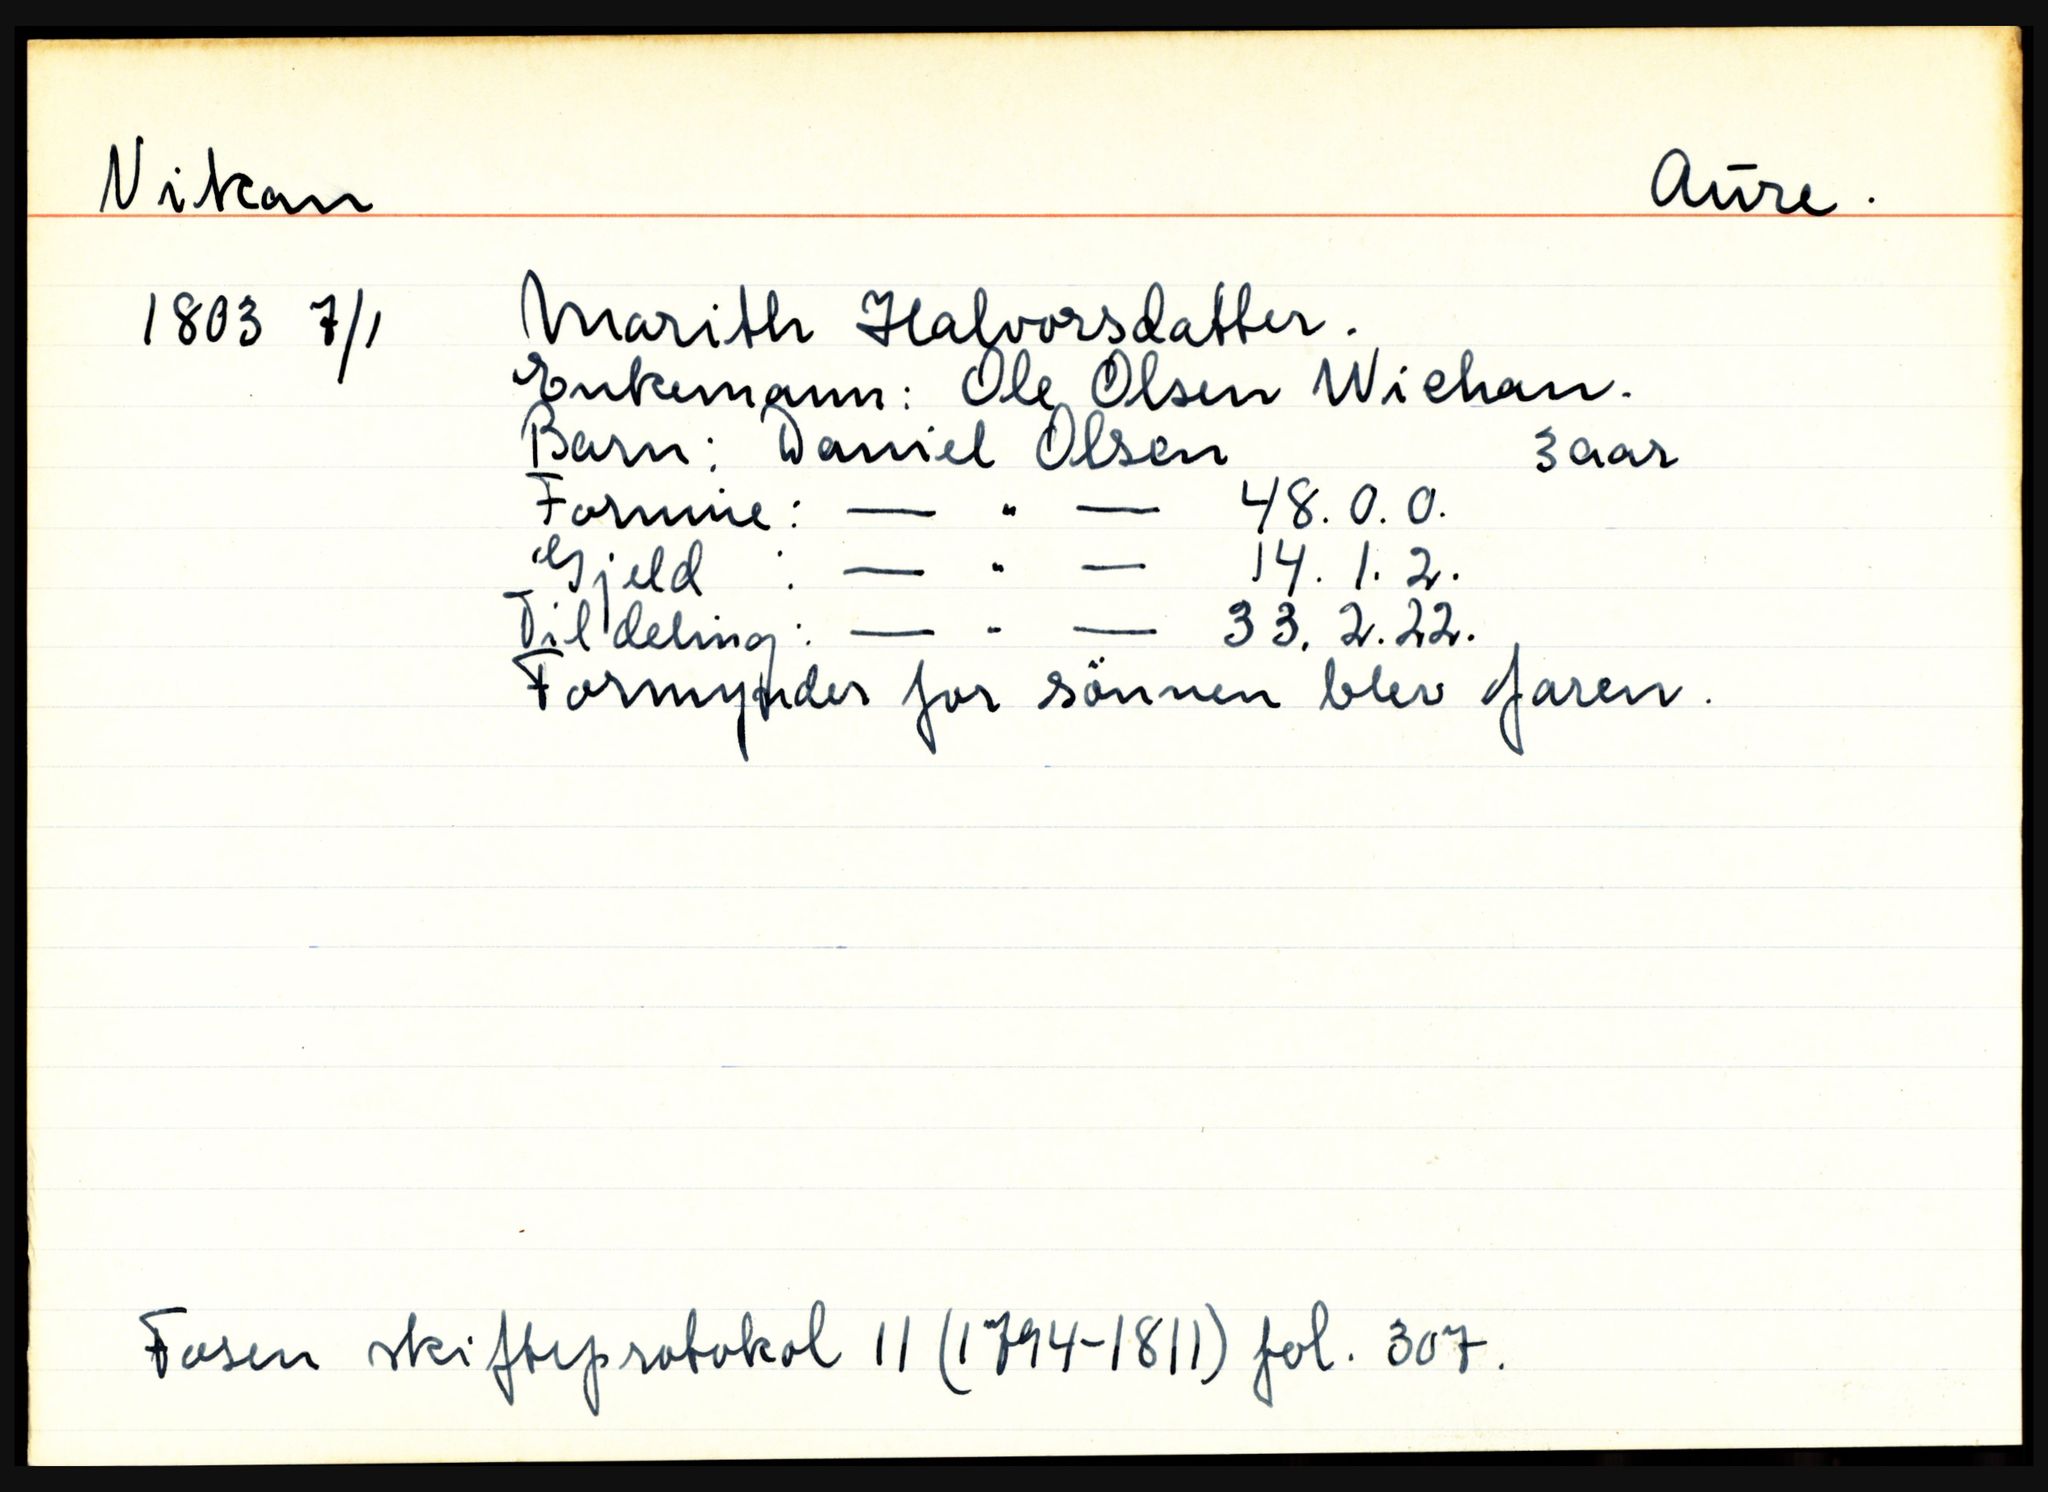 Vikan Aure.
1803 7/1 Marith Halvorsdatter.
Enkemann: Ole Olsen Wichan.
Barn: Daniel Olsen 3 aar
Formue: — " — 48. 0. 0.
Gjeld : — " — 14. 1. 2.
Tildeling: — " — 33. 2. 22.
Formynder for sönnen blev faren.
Fosen skifteprotokol 11 (1794-1811) fol. 307.